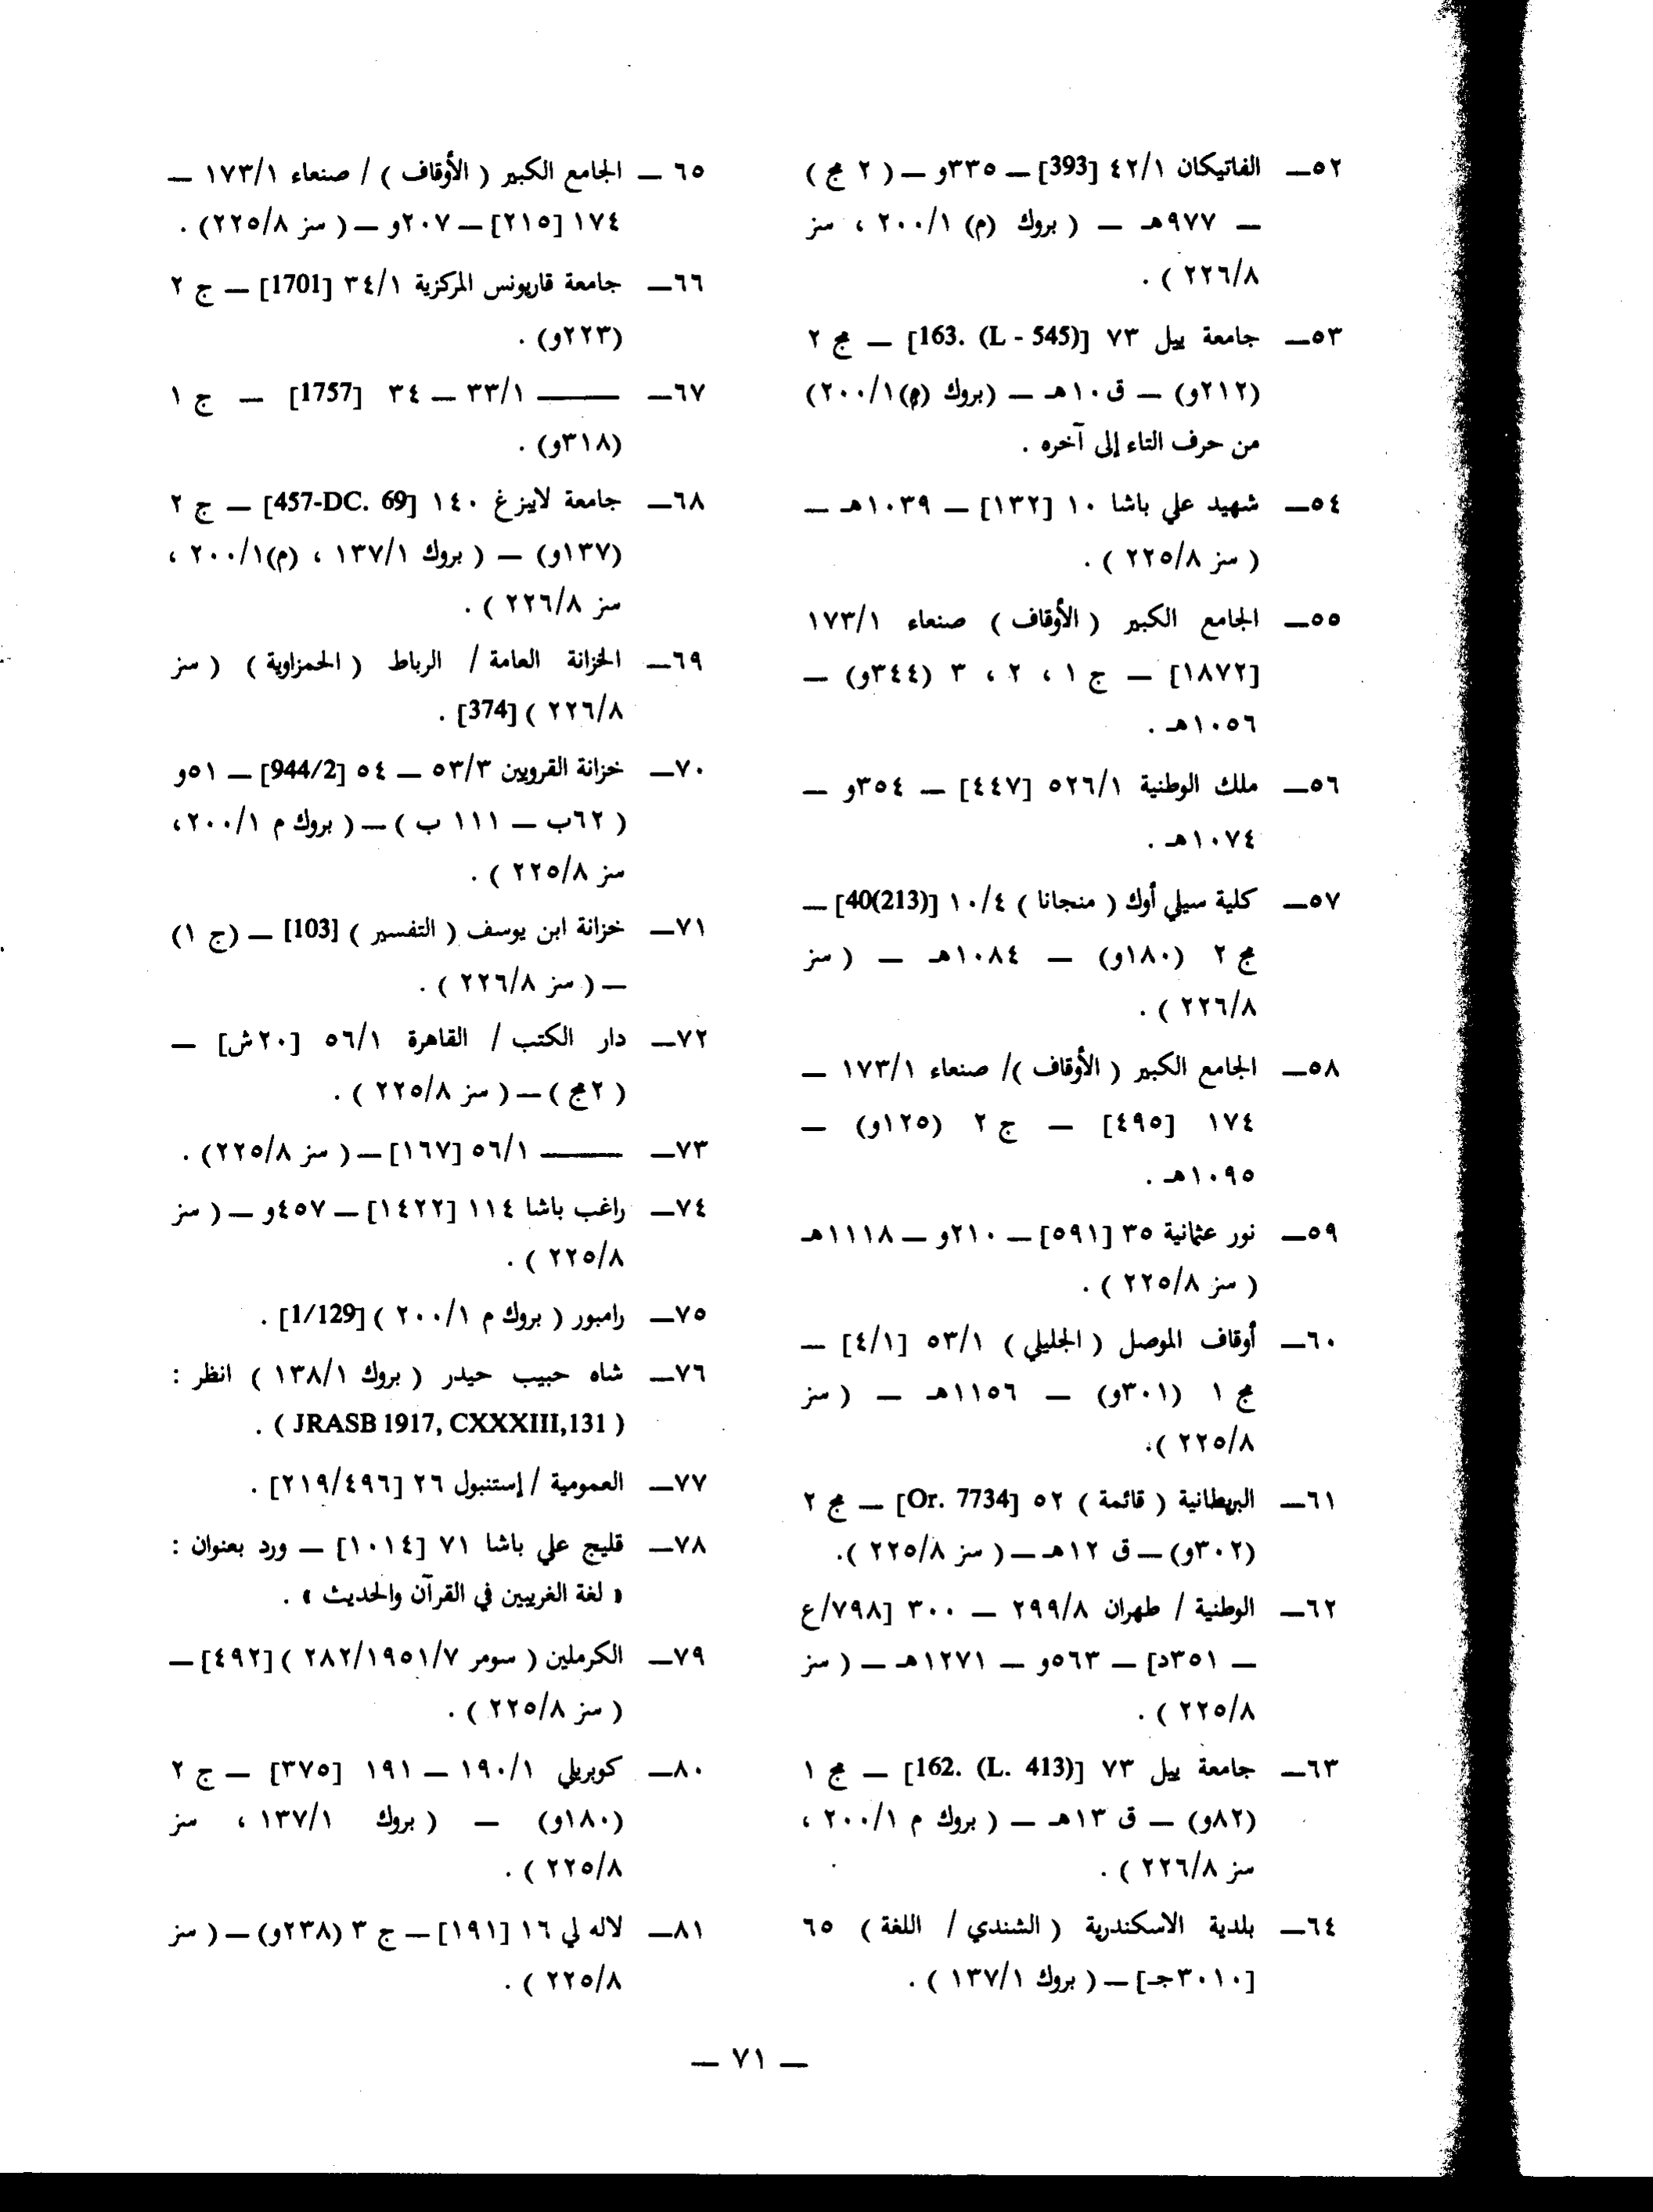 ٥٢ــ الفاتيكان ٤٢/١ [393] ــ ٣٣٥و ــ ( ٢ مج )
ــ ٩٧٧هـ ــ ( بروك (م) ٢٠٠/١ ، سز
٢٢٦/٨ ) .
٥٣ــ جامعة ييل ٧٣ [163. (L - 545)] ــ مج ٢
(٢١٢و) ــ ق١٠هـ ــ (بروك (م)٢٠٠/١)
من حرف التاء إلى آخره .
٥٤ــ شهيد علي باشا ١٠ [١٣٢] ــ ١٠٣٩هـ ــ
( سز ٢٢٥/٨ ) .
٥٥ــ الجامع الكبير ( الأوقاف ) صنعاء ١٧٣/١
[١٨٧٢] ــ ج ١ ، ٢ ، ٣ (٣٤٤و) ــ
١٠٥٦هـ .
٥٦ــ ملك الوطنية ٥٢٦/١ [٤٤٧] ــ ٣٥٤و ــ
١٠٧٤هـ .
٥٧ــ كلية سيلي أوك ( منجانا ) ١٠/٤ [40(213)] ــ
مج ٢ (١٨٠و) ــ ١٠٨٤هـ ــ ( سز
٢٢٦/٨ ) .
٥٨ــ الجامع الكبير ( الأوقاف )/ صنعاء ١٧٣/١ ــ
١٧٤ [٤٩٥] ــ ج ٢ (١٢٥و) ــ
١٠٩٥هـ .
٥٩ــ نور عثمانية ٣٥ [٥٩١] ــ ٢١٠و ــ ١١١٨هـ
( سز ٢٢٥/٨ ) .
٦٠ــ أوقاف الموصل ( الجليلي ) ٥٣/١ [٤/١] ــ
مج ١ (٣٠١و) ــ ١١٥٦هـ ــ ( سز
٢٢٥/٨ ).
٦١ــ البريطانية ( قائمة ) ٥٢ [Or. 7734] ــ مج ٢
(٣٠٢و) ــ ق ١٢هـ ــ ( سز ٢٢٥/٨ ).
٦٢ــ الوطنية / طهران ٢٩٩/٨ ــ ٣٠٠ [٧٩٨/ع
ــ ٣٥١د] ــ ٥٦٣و ــ ١٢٧١هـ ــ ( سز
٢٢٥/٨ ) .
٦٣ــ جامعة ييل ٧٣ [162. (L. 413)] ــ مج ١
(٨٢و) ــ ق ١٣هـ ــ ( بروك م ٢٠٠/١ ،
سز ٢٢٦/٨ ) .
٦٤ــ بلدية الاسكندرية ( الشندي / اللغة ) ٦٥
[٣٠١٠جـ] ــ ( بروك ١٣٧/١ ) .
٦٥ ــ الجامع الكبير ( الأوقاف ) / صنعاء ١٧٣/١ ــ
١٧٤ [٢١٥] ــ ٢٠٧و ــ ( سز ٢٢٥/٨) .
٦٦ــ جامعة قاريونس المركزية ٣٤/١ [1701] ــ ج ٢
(٢٢٣و) .
٦٧ــ ــــــــ ٣٣/١ ــ ٣٤ [1757] ــ ج ١
(٣١٨و) .
٦٨ــ جامعة لايبزغ ١٤٠ [457-DC. 69] ــ ج ٢
(١٣٧و) ــ ( بروك ١٣٧/١ ، (م)٢٠٠/١ ،
سز ٢٢٦/٨ ) .
٦٩ــ الخزانة العامة / الرباط ( الحمزاوية ) ( سز
٢٢٦/٨ ) [374] .
٧٠ــ خزانة القرويين ٥٣/٣ ــ ٥٤ [944/2] ــ ٥١و
( ٦٢ب ــ ١١١ ب ) ــ ( بروك م ٢٠٠/١،
سز ٢٢٥/٨ ) .
٧١ــ خزانة ابن يوسف ( التفسير ) [103] ــ (ج ١)
ــ ( سز ٢٢٦/٨ ) .
٧٢ــ دار الكتب / القاهرة ٥٦/١ [٢٠ش] ــ
( ٢مج ) ــ ( سز ٢٢٥/٨ ) .
٧٣ــ ــــــــ ٥٦/١ [١٦٧] ــ ( سز ٢٢٥/٨) .
٧٤ــ راغب باشا ١١٤ [١٤٢٢] ــ ٤٥٧و ــ ( سز
٢٢٥/٨ ) .
٧٥ــ رامبور ( بروك م ٢٠٠/١ ) [1/129] .
٧٦ــ شاه حبيب حيدر ( بروك ١٣٨/١ ) انظر :
( JRASB 1917, CXXXIII,131 ) .
٧٧ــ العمومية / إستنبول ٢٦ [٢١٩/٤٩٦] .
٧٨ــ قليج علي باشا ٧١ [١٠١٤] ــ ورد بعنوان :
« لغة الغريبين في القرآن والحديث » .
٧٩ــ الكرملين ( سومر ٢٨٢/١٩٥١/٧ ) [٤٩٢] ــ
( سز ٢٢٥/٨ ) .
٨٠ــ كوبريلي ١٩٠/١ ــ ١٩١ [٣٧٥] ــ ج ٢
(١٨٠و) ــ ( بروك ١٣٧/١ ، سز
٢٢٥/٨ ) .
٨١ــ لاله لي ١٦ [١٩١] ــ ج ٣ (٢٣٨و) ــ ( سز
٢٢٥/٨ ) .
ــ ٧١ ــ